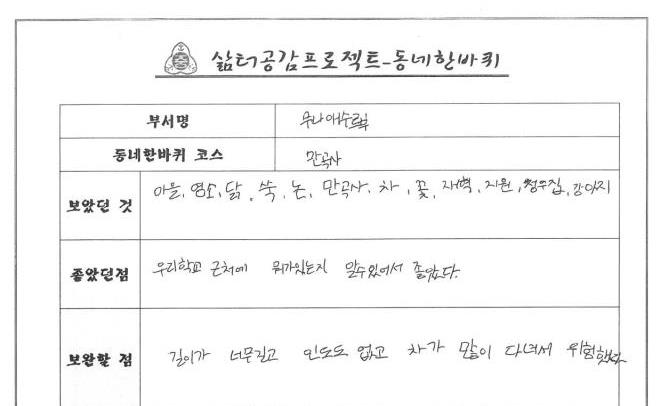 삶터공감프로젝트-동네한바퀴
부서명
동네한바퀴 코스 만곡사
보았던 것 마을, 염소, 닭, 쑥, 논, 만곡사, 차, 꽃, 새벽, 지원, 강아지
좋았던점 우리학교 근처에 뭐가있는지 알수있어서 좋았다.
보완할 점 길이가 너무길고 인도도 없고 차가 많이 다녀서 위험했다